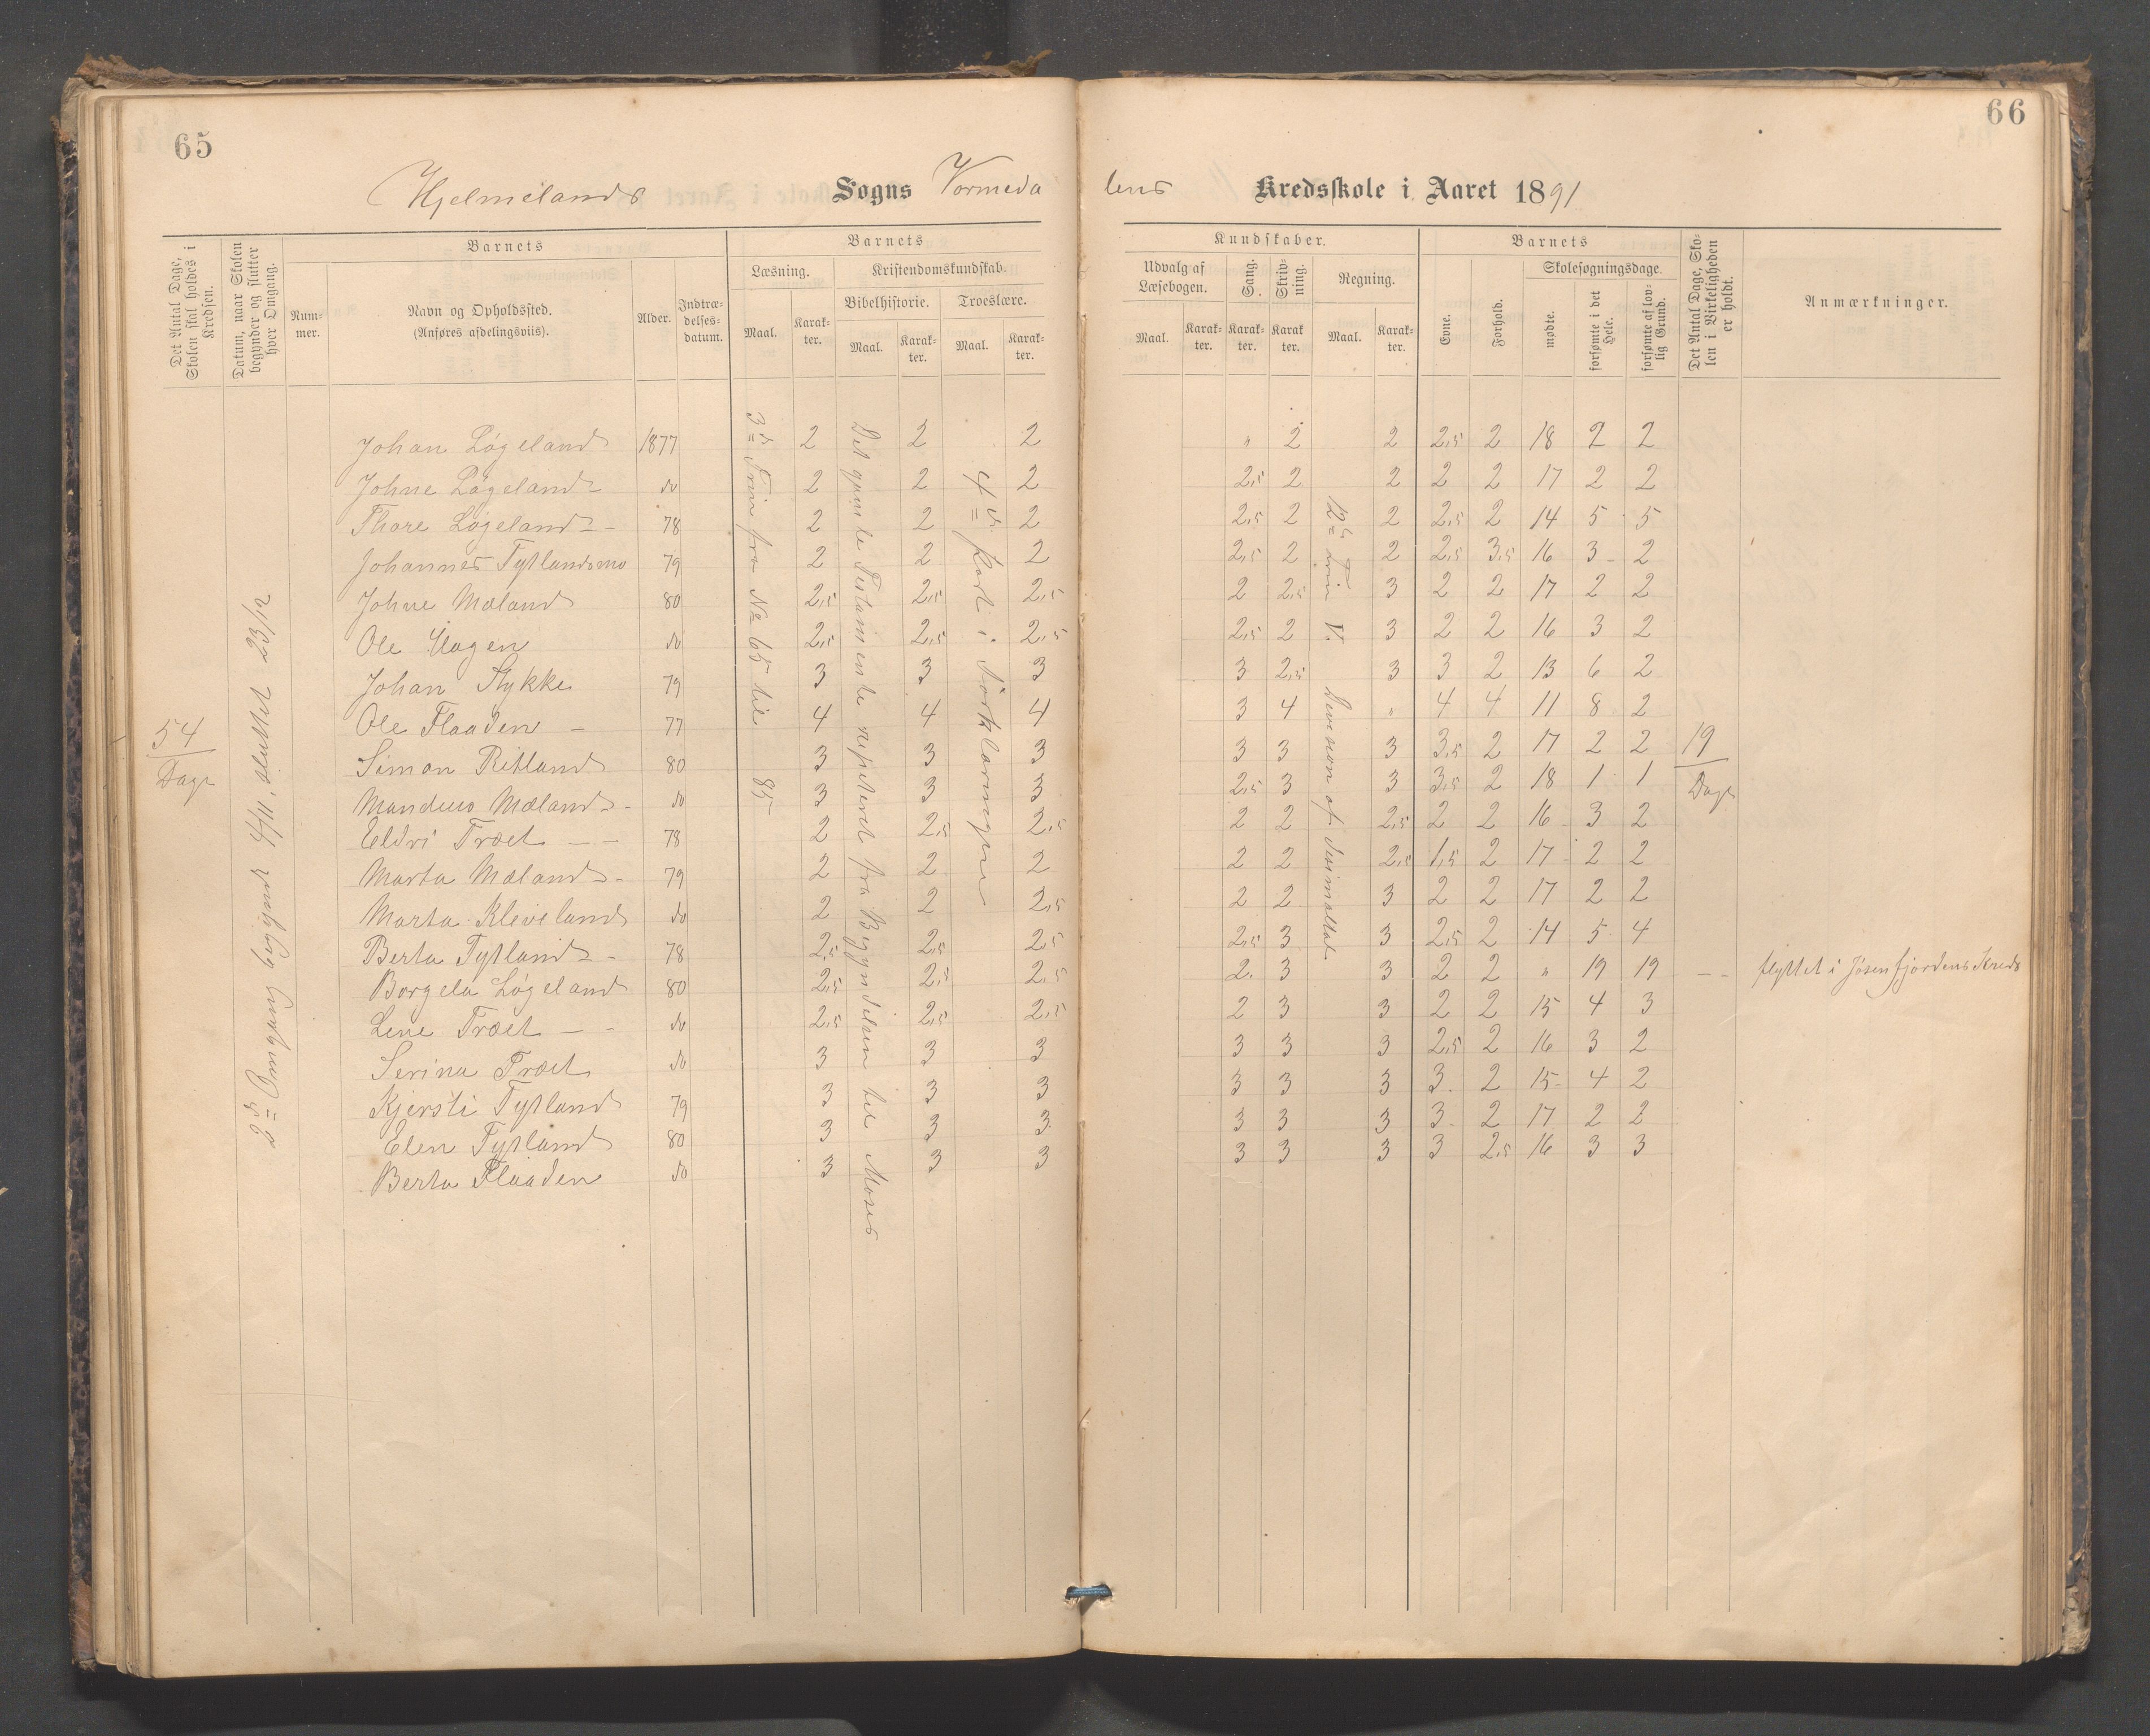 65
66
Hjelmelands Sogns Vormeda
lens Kredsskole i Aaret 1891
Det Antal Dage, Skolen skal holdes i Kredsen.
Datum, naar Skolen begynder og slutter hver Omgang.
Barnets
Nummer.
Navn og Opholdssted.
(Anføres afdelingsviis).
Alder.
Indtrædelsesdatum.
Barnets
Læsning.
Maal.
Karakter.
Kristendomskundskab.
Bibelhistorie.
Maal.
Karakter.
Troeslære.
Maal.
Karakter.
Kundskaber.
Udvalg af Læsebogen.
Maal.
Karakter.
Sang.
Karakter.
Skrivning.
Karakter.
Regning.
Maal.
Karakter.
Barnets
Evne.
Forhold.
Skolesøgningsdage.
mødte.
forsømte i det Hele.
forsømte af lovlig Grund.
Det Antal Dage, Skolen i Virkeligheden er holdt.
Anmærkninger.
54
Dage
2den Omgang begyndt 4/11, sluttet 23/12
3die Trin fra No 65 til 85
Det gamle Testamente repeteret fra Begyndelsen til Moses
4de Part i Forklaringen
12te Trin V. Devesion af desimaltal
19
Dage
Johan Løgeland 1877 2 2 2 " 2 2 2,5 2 18 2 2
Johne Løgeland do 2 2 2 2,5 2 2 2 2 17 2 2
Thore Løgeland 78 2 2 2 2,5 2 2 2,5 2 14 5 5
Johannes Tytlandsmo 79 2 2 2 2,5 2 2 2,5 3,5 16 3 2
Johne Mæland 80 2,5 2,5 2,5 2 2,5 3 2 2 17 2 2
Ole Hagen do 2,5 2,5 2,5 2,5 2 3 2 2 16 3 2
Johan Stykke 79 3 3 3 3 2,5 3 3 2 13 6 2
Ole Flaaden 77 4 4 4 3 4 " 4 4 11 8 2
Simon Ritland 80 3 3 3 3 3 3 3,5 2 17 2 2
Mandius Mæland do 3 3 3 2,5 3 3 3,5 2 18 1 1
Eldri Træet 78 2 2,5 2,5 2 2 2,5 2 2 16 3 2
Marta Mæland 79 2 2 2 2 2 2,5 1,5 2 17 2 2
Marta Kleveland do 2 2 2,5 2 2 3 2 2 17 2 2
Berta Tytland 78 2,5 2,5 2,5 2,5 3 3 2,5 2 14 5 4
Borgela Løgeland 80 2,5 2,5 2,5 2 3 3 2 2 " 19 19 flyttet i Jøsenfjordens Kreds
Lene Træet do 2,5 2,5 2,5 2 3 3 2 2 15 4 3
Serina Træet do 3 3 3 3 3 3 2,5 2 16 3 2
Kjersti Tytland 79 3 3 3 3 3 3 3 2 15 4 2
Elen Tytland 80 3 3 3 3 3 3 3 2 17 2 2
Berta Flaaden do 3 3 3 3 3 3 3 2,5 16 3 3